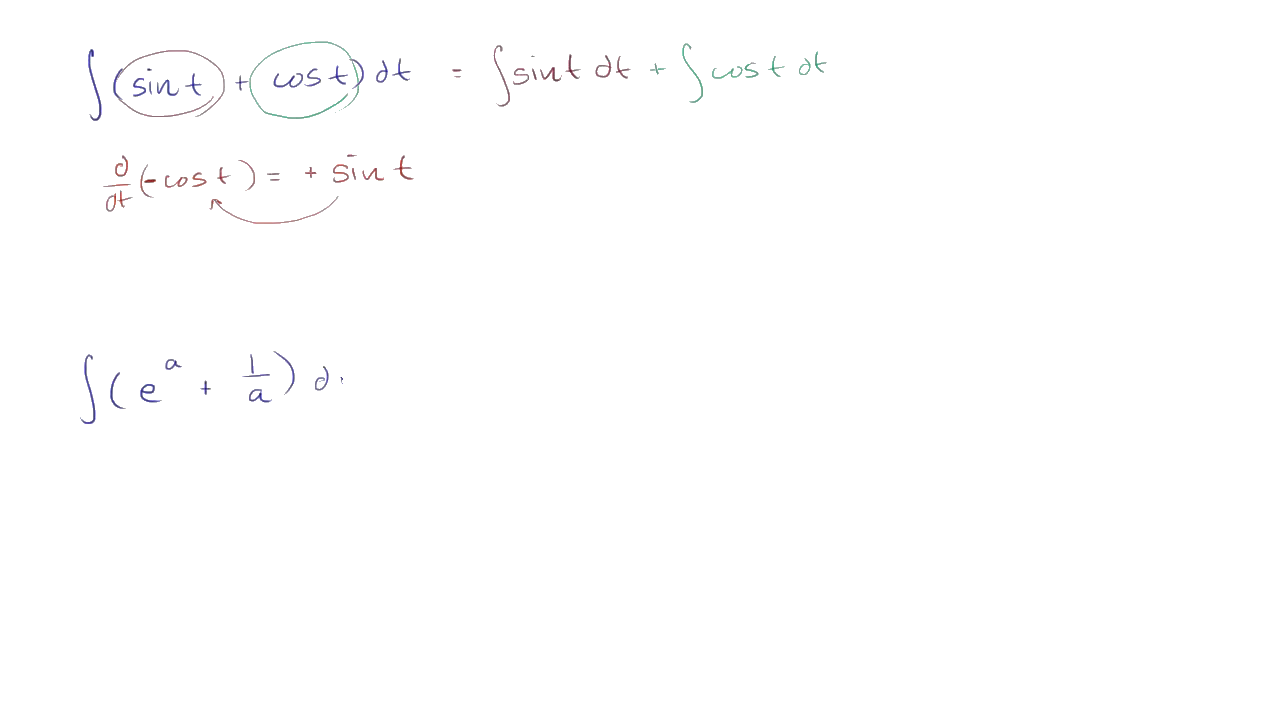 ∫(sin t + cos t) dt = ∫sin t dt + ∫cos t dt
d/dt (-cos t) = + sin t
∫(e^a + 1/a) d